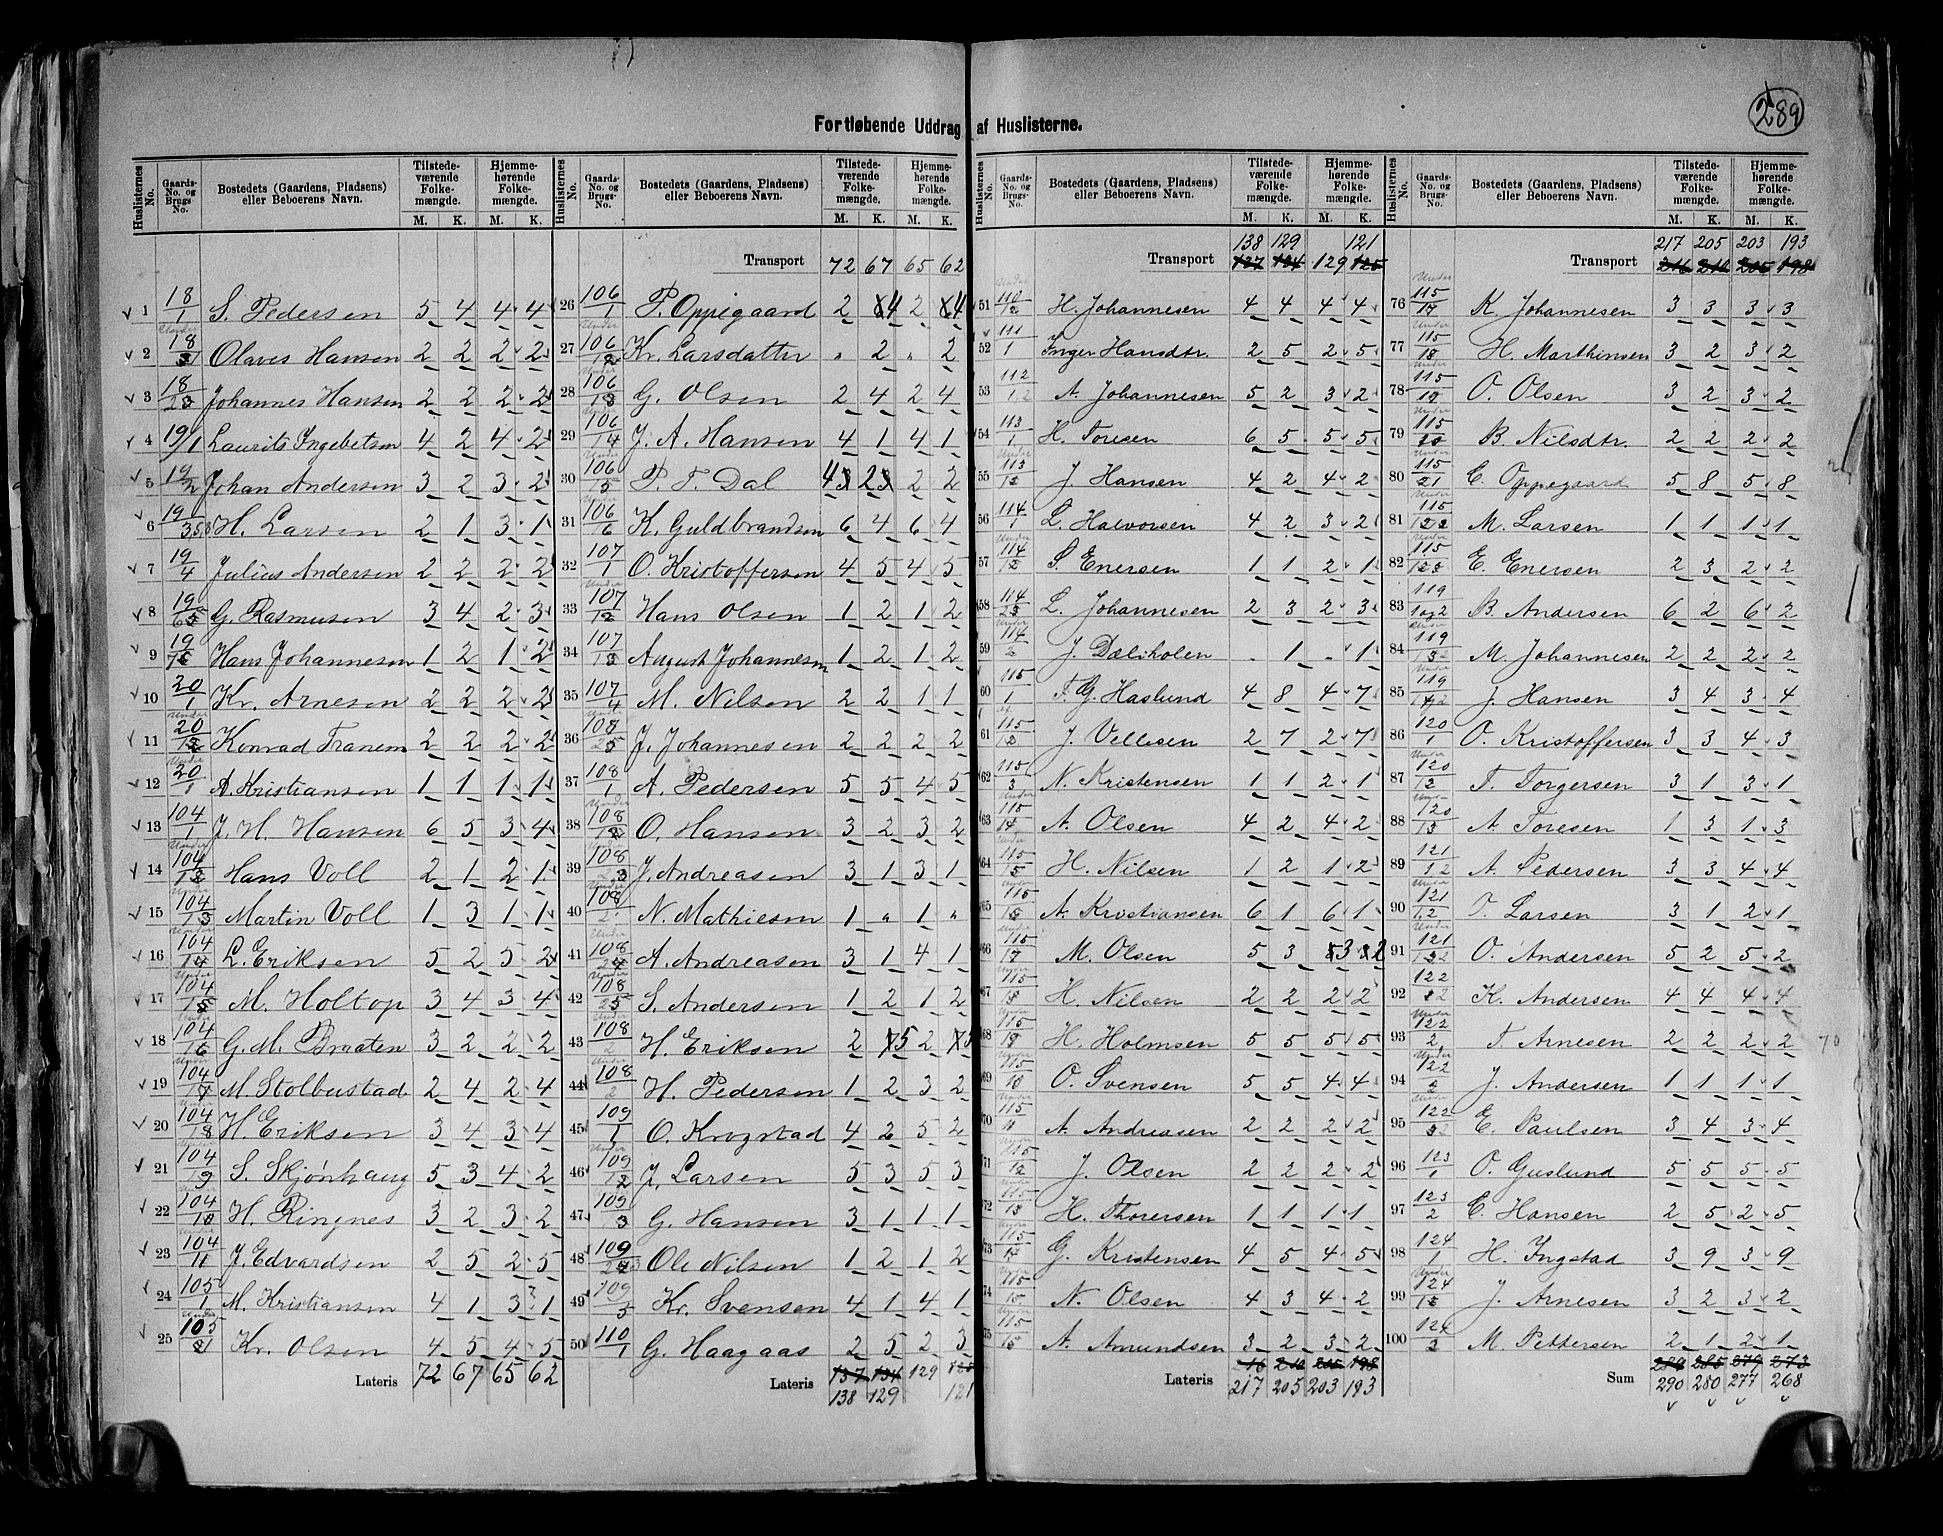 289
Fortløbende Uddrag af Huslisterne.
Huslisternes No. Gaards-No. og Brugs-No. Bostedets (Gaardens, Pladsens) eller Beboerens Navn. Tilstedeværende Folkemængde. M. K. Hjemmehørende Folkemængde. M. K.
1 18/1 S. Pedersen 5 4 4 4
2 18 Olaves Hansen 2 2 2 2
3 18 Johannes Hansen 2 2 2 2
4 19/1 Laurits Ingebetsen 4 2 4 2
5 19/2 Johan Andersen 3 2 3 2
6 19/3 H. Larsen 2 1 3 1
7 19/4 Julius Andersen 2 2 2 2
8 19 G. Rasmusen 3 4 2 3
9 19 Hans Johannesen 1 2 1 2
10 20/1 Kr. Arnesen 2 2 2 2
11 Under 20 Konrad Tranem 2 2 2 2
12 Under 20 A. Kristiansen 1 1 1 1
13 104/1 J. H. Hansen 6 5 3 4
14 Under 104 Hans Voll 2 1 2 1
15 Under 104 Martin Voll 1 3 1 1
16 Under 104 L. Eriksen 5 2 5 2
17 Under 104 M. Holtop 3 4 3 4
18 Under 104 G. M. Braaten 3 2 2 2
19 Under 104 M. Stolbustad 2 4 2 4
20 104 H. Eriksen 3 4 3 4
21 104 S. Skjønhaug 5 3 4 2
22 104 H. Ringnes 3 2 3 2
23 104 J. Edvardsen 2 5 2 5
24 105/1 M. Kristiansen 4 1 3 1
25 Under 105 Kr. Olsen 4 5 4 5
Lateris 72 67 65 62
Huslisternes No. Gaards-No. og Brugs-No. Bostedets (Gaardens, Pladsens) eller Beboerens Navn. Tilstedeværende Folkemængde. M. K. Hjemmehørende Folkemængde. M. K.
Transport 72 67 65 62
26 106/1 P. Oppegaard 2 4 2 4
27 Under 106 Kr. Larsdatter " 2 " 2
28 Under 106 G. Olsen 2 4 2 4
29 Under 106 J. A. Hansen 4 1 4 1
30 106 P. T. Dal 4 2 2 2
31 Under 106 K. Guldbrandsen 6 4 6 4
32 107/1 O. Kristoffersen 4 5 4 5
33 Under 107 Hans Olsen 1 2 1 2
34 107 August Johannesen 1 2 1 2
35 107/4 M. Nilsen 2 2 1 1
36 108 J. Johannesen 2 2 2 2
37 108/1 A. Pedersen 5 5 4 5
38 Under 108 O. Hansen 3 2 3 2
39 108 J. Andreasen 3 1 3 1
40 Under 108/2 N. Mathiesen 1 " 1 "
41 Under 108 A. Andreasen 3 1 4 1
42 Under 108 S. Andersen 1 2 1 2
43 Under 108/2 H. Eriksen 2 5 2 5
44 Under 108/2 H. Pedersen 1 2 3 2
45 109/1 O. Krogstad 4 2 5 2
46 Under 109 J. Larsen 5 3 5 3
47 109/3 G. Hansen 3 1 1 1
48 109 Ole Nilsen 1 2 1 2
49 109 Kr. Svensen 4 1 4 1
50 110/1 G. Haagaas 2 5 2 3
Lateris 137 134 129 125
138 129 121
Huslisternes No. Gaards-No. og Brugs-No. Bostedets (Gaardens, Pladsens) eller Beboerens Navn. Tilstedeværende Folkemængde. M. K. Hjemmehørende Folkemængde. M. K.
138 129 121
Transport 137 134 129 125
51 Under 110 H. Johannesen 4 4 4 4
52 111/1 Inger Hansdtr. 2 5 2 5
53 112 A. Johannesen 5 2 3 2
54 113/1 H. Toresen 6 5 5 5
55 Under 113 J. Hansen 4 2 4 2
56 114/1 L. Halvorsen 4 2 3 2
57 Under 114 S. Enersen 1 1 2 1
58 114 L. Johannesen 2 3 2 3
59 Under 114/2 J. Dæliholen - 1 - 1
60 115/1 T. G. Haslund 4 8 4 7
61 115 J. Vellesen 2 7 2 7
62 115/3 N. Kristensen 1 1 2 1
63 Under 115 A. Olsen 4 2 4 2
64 Under 115 H. Nilsen 1 2 1 2
65 Under 115 A. Kristiansen 6 1 6 1
66 Under 115 M. Olsen 5 3 3 2
67 Under 115 H. Nilsen 2 2 2 2
68 Under 115 H. Holmsen 5 5 5 5
69 Under 115 O. Svensen 5 5 4 4
70 Under 115 A. Andreasen 2 2 2 2
71 115 J. Olsen 2 2 2 2
72 Under 115 H. Thoresen 1 1 1 1
73 Under 115 G. Kristensen 4 5 4 5
74 Under 115 N. Olsen 4 3 4 2
75 Under 115 A. Amundsen 3 2 3 2
Lateris 216 210 205 198
217 205 203 193
Huslisternes No. Gaards-No. og Brugs-No. Bostedets (Gaardens, Pladsens) eller Beboerens Navn. Tilstedeværende Folkemængde. M. K. Hjemmehørende Folkemængde. M. K.
217 205 203 193
Transport 216 210 205 198
76 Under 115 K. Johannesen 3 3 3 3
77 Under 115 H. Marthinsen 3 2 3 2
78 Under 115 O. Olsen 3 2 3 2
79 Under 115 B. Nilsdtr. 2 2 2 2
80 115/21 E. Oppegaard 5 8 5 8
81 Under 115 M. Larsen 1 1 1 1
82 Under 115 E. Enersen 2 3 2 2
83 119/1 og 2 B. Andersen 6 2 6 2
84 Under 119 M. Johannesen 2 2 2 2
85 Under 119 J. Hansen 3 4 3 4
86 120/1 O. Kristoffersen 3 3 4 3
87 120 T. Torgersen 3 1 3 1
88 120 A. Toresen 1 3 1 3
89 121 A. Pedersen 3 3 4 4
90 121 O. Larsen 3 1 2 1
91 Under 121 O. Andersen 5 2 5 2
92 122 K. Andersen 4 4 4 4
93 Under 122/2 T. Arnesen 2 2 2 2
94 Under 122/2 J. Andersen 1 1 1 1
95 Under 122 E. Paulsen 3 4 3 4
96 123/1 O. Guslund 5 5 5 5
97 123/2 E. Hansen 2 5 2 5
98 124/1 H. Ingstad 3 9 3 9
99 Under 124 J. Arnesen 3 2 3 2
100 124 M. Pettersen 2 1 2 1
Sum 289 285 279 273
290 280 277 268